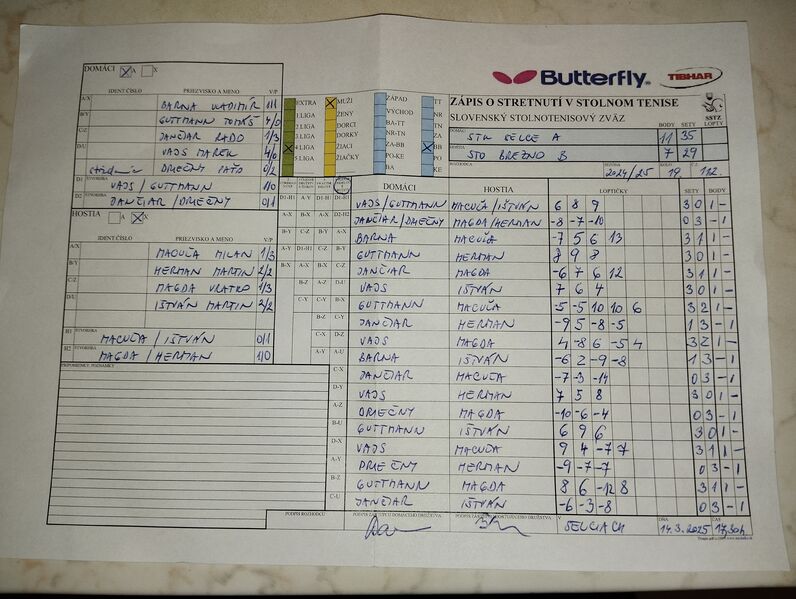 DOMÁCI X A X
IDENT ČÍSLO PRIEZVISKO A MENO V/P
A/X BARNA VLADIMÍR 1/1
B/Y GUTTMANN TOMÁŠ 4/0
C/Z JANČIAR RADO 1/3
D/U VAJS MAREK 4/0
striedanie DRIEČNY PAŤO 0/2
D1 ŠTVORHRA VAJS/GUTTMANN 1/0
D2 ŠTVORHRA JANČIAR/DRIEČNY 0/1
HOSTIA A X
IDENT ČÍSLO PRIEZVISKO A MENO V/P
A/X MACUĽA MILAN 1/3
B/Y HERMAN MARTIN 2/2
C/Z MAGDA VRATKO 1/3
D/U IŠTVÁN MARTIN 2/2
H1 ŠTVORHRA MACUĽA/IŠTVÁN 0/1
H2 ŠTVORHRA MAGDA/HERMAN 1/0
PRIPOMIENKY, POZNÁMKY
EXTRA
1 LIGA
2 LIGA
3 LIGA
4 LIGA
5 LIGA
MUŽI
ŽENY
DORCI
DORKY
ŽIACI
ŽIAČKY
ZÁPAD
VÝCHOD
BA-TT
NR-TN
ZA-BB
PO-KE
BA
TT
NR
TN
ZA
BB
PO
KE
Butterfly
TIBHAR
ZÁPIS O STRETNUTÍ V STOLNOM TENISE
SLOVENSKÝ STOLNOTENISOVÝ ZVÄZ
SSTZ
BODY SETY LOPTY
DOMÁCI STK SELCE A 11 35
HOSTIA STO BREZNO B 7 29
ROZHODCA SEZÓNA 2024/25 19. 112.
DOMÁCI HOSTIA LOPTIČKY SETY BODY
VAJS/GUTTMANN MACUĽA/IŠTVÁN 6 8 9 3 0 1 -
JANČIAR/DRIEČNY MAGDA/HERMAN -8 -7 -10 0 3 - 1
BARNA MACUĽA -7 5 6 13 3 1 1 -
GUTTMANN HERMAN 8 9 8 3 0 1 -
JANČIAR MAGDA -6 7 6 12 3 1 1 -
VAJS IŠTVÁN 7 6 4 3 0 1 -
GUTTMANN MACUĽA -5 -5 10 10 6 3 2 1 -
JANČIAR HERMAN -9 5 -8 -5 1 3 - 1
VAJS MAGDA 4 -8 6 -5 4 3 2 1 -
BARNA IŠTVÁN -6 2 -9 -8 1 3 - 1
JANČIAR MACUĽA -7 -3 -14 0 3 - 1
VAJS HERMAN 7 5 8 3 0 1 -
DRIEČNY MAGDA -10 -6 -4 0 3 - 1
GUTTMANN IŠTVÁN 6 9 6 3 0 1 -
VAJS MACUĽA 9 4 -7 7 3 1 1 -
DRIEČNY HERMAN -9 -7 -7 0 3 - 1
GUTTMANN MAGDA 8 6 -12 8 3 1 1 -
JANČIAR IŠTVÁN -6 -3 -8 0 3 - 1
PODPIS ROZHODCU
PODPIS ZÁSTUPCU DOMÁCEHO DRUŽSTVA
PODPIS ZÁSTUPCU HOSŤUJÚCEHO DRUŽSTVA
V SELCIACH
DŇA 14.3.2025
ČAS 17,30h